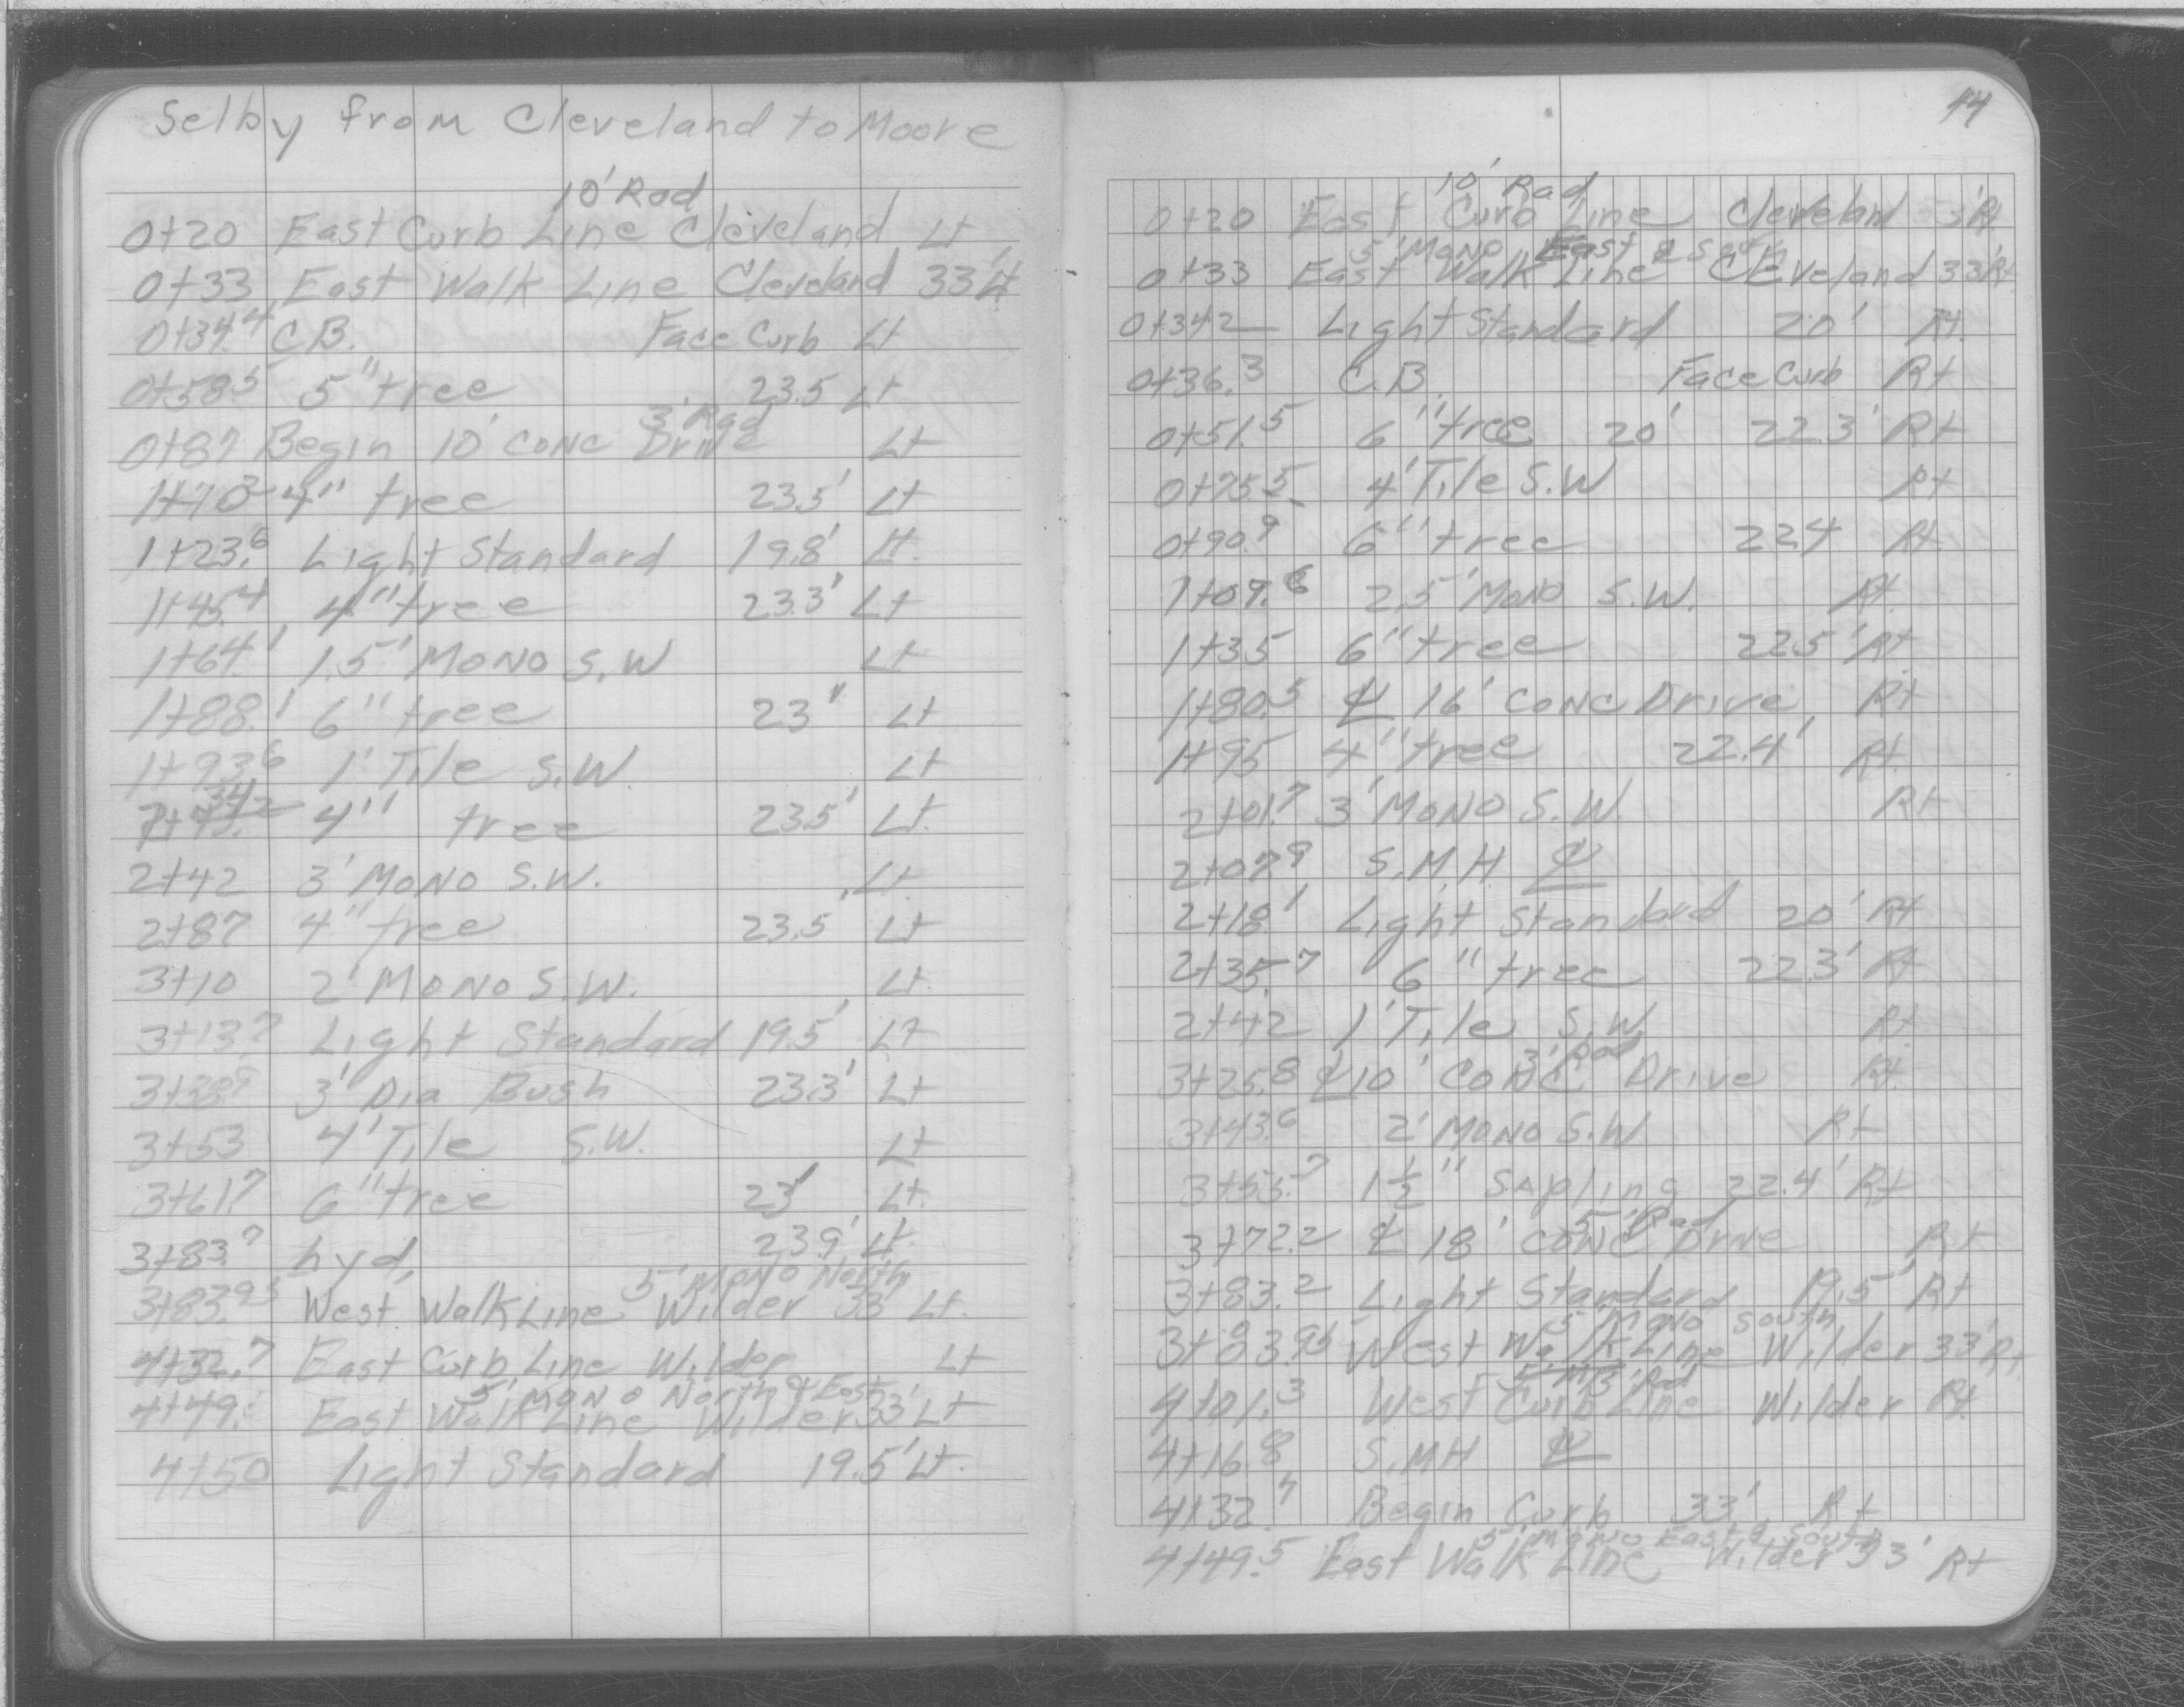 Selby from Cleveland to Moore
10' Rad
0+20 East Curb Line Cleveland Lt
0+33 East Walk Line Cleveland 33' Lt
0+34.4 C.B. Face Curb Lt
0+58.5 5" tree 23.5 Lt
3' Rad
0+87 Begin 10' conc Drive Lt
4" tree 23.5' Lt
1+23.6 Light Standard 19.8' Lt.
1+45.4 4" tree 23.3' Lt
1+64.1 1.5' MONO S.W Lt
1+88.1 6" tree 23' Lt
1+93.6 1' Tile S.W. Lt
4" tree 23.5' Lt.
2+42 3' MONO S.W. Lt.
2+87 4" tree 23.5 Lt
3+10 2' MONO S.W. Lt.
3+13.7 Light Standard 19.5' Lt
3' Dia Bush 23.3' Lt
3+53 4' Tile S.W. Lt
3+61.7 6" tree 23' Lt.
3+83.9 hyd, 23.9' Lt.
5' MONO North
West Walk Line Wilder 33' Lt.
4+32.7 East Curb Line Wilder Lt
5' MONO North & East
4+49. East Walk Line Wilder 33' Lt
4+50 Light Standard 19.5' Lt.
14
10' Rad
0+20 East Curb Line Cleveland Rt.
5' Mono East &
0+33 East Walk Line Cleveland 33' Rt
0+34.2 Light Standard 20' Rt.
0+36.3 C.B. Face Curb Rt
0+51.5 6" tree 20' 22.3' Rt
0+75.5 4' Tile S.W Rt
0+90.9 6" tree 22.4 Rt.
1+07.6 2.5' Mono S.W. Rt.
1+35 6" tree 22.5' Rt.
1+80.5 ℄ 16' CONC Drive Rt
1+95 4" tree 22.4' Rt.
2+01.7 3' MONO S.W. Rt
2+07.9 S.M.H. ℄
2+18.1 Light Standard 20' Rt
2+35.7 6" tree 22.3' Rt
2+42 1' Tile S.W. Rt.
3' Rad
3+25.8 ℄ 10' CONC Drive Rt.
3+43.6 2' MONO S.W Rt
3+53.7 1½" Sapling 22.4' Rt
5' Rad
3+72.2 ℄ 18' CONC Drive Rt
3+83.2 Light Standard 19.5' Rt
5' MONO South
3+83.95 West Walk Line Wilder 33' Rt
Rad
4+01.3 West Curb Line Wilder Rt.
4+16.8 S.MH ℄
4+32.7 Begin Curb 33' Rt
5' MONO East & South
4+49.5 East Walk Line Wilder 33' Rt